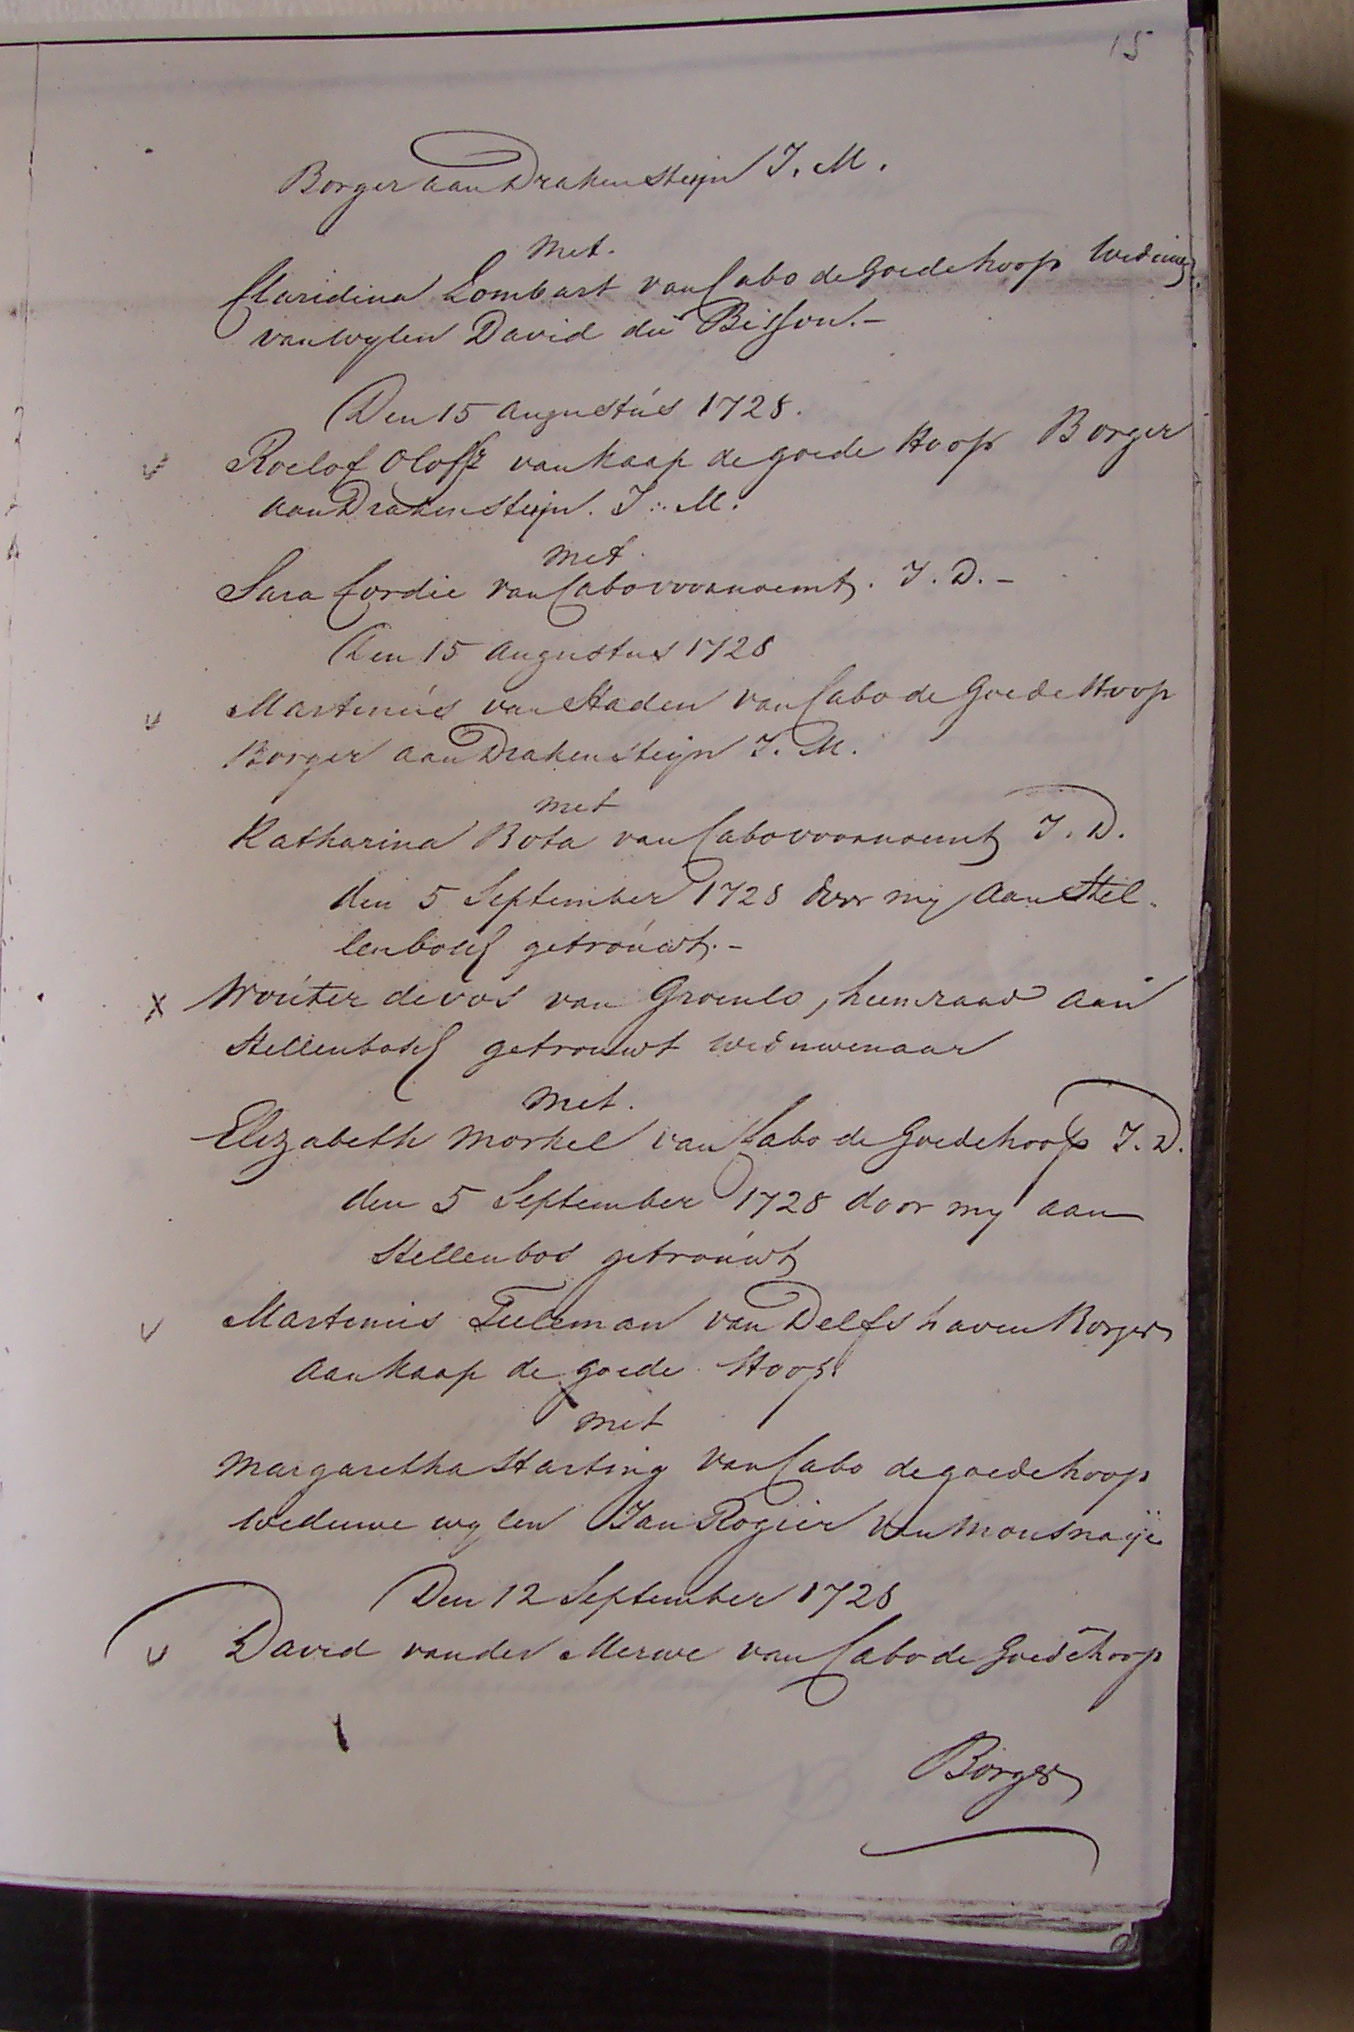 15
Borger aan Drakensteijn J. M.
met.
Claridina Lombart van Cabo de Goede hoop Weduwe
van wylen David du Bisson. -
Den 15 Augustús 1728.
Roelof Oloffz van Kaap de goede Hoop Borger
aan Drakensteijn. J: M.
met.
Sara Cordie van Cabo voornoemt. J. D. -
Den 15 Augustus 1728
Martinús van Staden van Cabo de Goede Hoop
Borger aan Drakensteijn J. M.
met
Katharina Bota van Cabo voornoemt J. D.
den 5 September 1728 door my aan Stel-
lenbosch getroúwt. -
X Woúter de vos van Groenlo, heemraad aan
Stellenbosch getrouwt weduwenaar
met.
Elizabeth Morkel van Cabo de Goede hoop J. D.
den 5 September 1728 door my aan
Stellenbos getroúwt
Martinus Tuleman van Delfshaven Borger
aan Kaap de goede Hoop
met
Margaretha Harting van Cabo de goede hoop
weduwe wylen Jan Rogier van
Den 12 September 1728
David vander Merwe van Cabo de Goede hoop
Borger